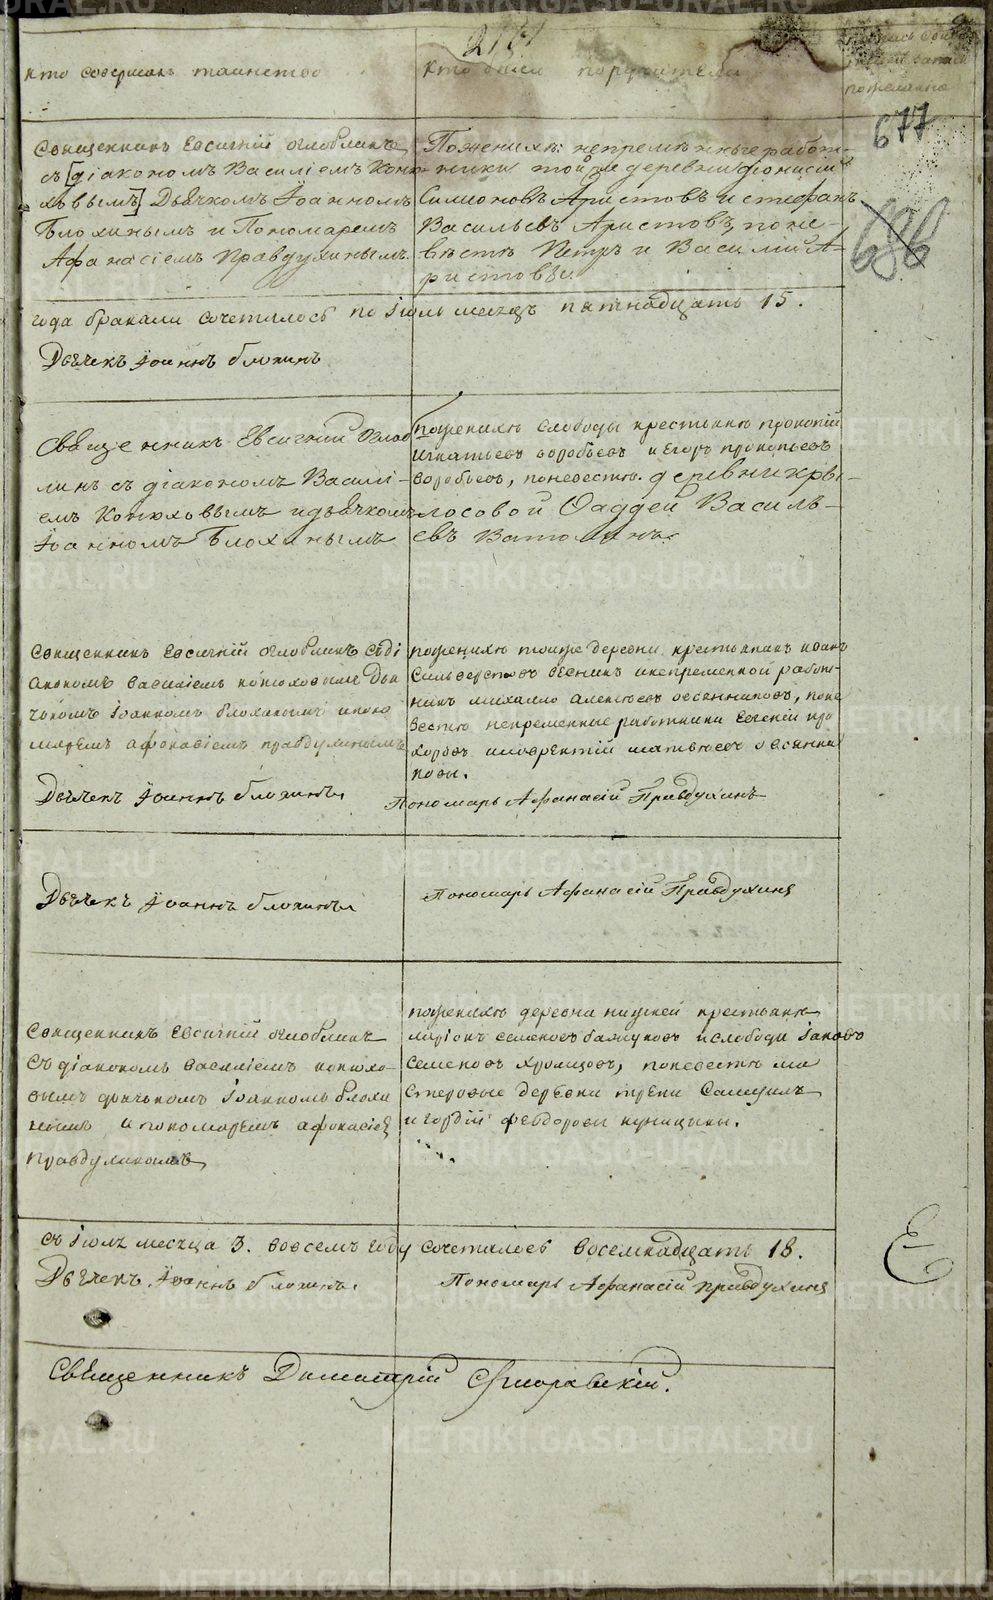 кто совершалъ таинство
кто были поручители
677
686
Священникъ Евсигній Оглоблинъ
съ [діакономъ Василіемъ Коню-
ховымъ] Дьячкомъ Іоанномъ
Блохинымъ и Пономаремъ
Афанасіемъ Правдухинымъ
По женихѣ: непремѣнные работ-
ники той же деревни Діонисій
Симионовъ Аристовъ и Стефанъ
Васильевъ Аристовъ, по не-
вѣстѣ Петръ и Василій А-
ристовы
года браками сочеталось по Іюль месяцъ пятнадцать 15.
Дьячекъ Іоаннъ Блохинъ
Священникъ Евсигній Огло
линъ съ діакономъ Василі-
емъ Конюховымъ и дьячкомъ
Іоанномъ Блохинымъ
по женихѣ слободы крестьяне прокопій
Игнатьевъ воробьевъ и Егоръ прокопьевъ
воробьевъ, по невестѣ деревни кры-
лосовой Фаддей Василь-
евъ Ватолинъ.
Священникъ Евсигній оглоблинъ съ ді
акономъ василіемъ конюховымъ дья
чкомъ Іоанномъ блохинымъ и поно
маремъ афонасіемъ правдухинымъ
по женихѣ тоже деревни крестьянинъ
и непременной работ-
никъ михайло алексѣевъ овсянниковъ, по не
вестѣ непременные работники Евгеній про
хоровъ и лаврентій матвѣевъ овсянни
ковы.
Дьячекъ Іоаннъ Блохинъ.
Пономарь Афанасій Правдухинъ
Дьячекъ Іоаннъ Блохинъ
Пономарь Афанасій Правдухинъ
Священникъ Евсигній оглоблинъ
съ діакономъ василіемъ конюхо-
вымъ дьячкомъ Іоанномъ блохи
нымъ и пономаремъ афонасіем
правдухинымъ
по женихѣ деревни крестьяне
семеновъ и слободы Іаковъ
семеновъ хромцовъ, по невестѣ ма
стеровые деревни треки Самуилъ
и гордій феодоровы куницыны.
съ Іюля месяца 3. во всемъ году сочеталось восемнадцать 18.
Дьячекъ Іоаннъ Блохинъ.
Пономарь Афанасій правдухинъ
Священникъ Димитрій
METRIKI.GASO-URAL.RU